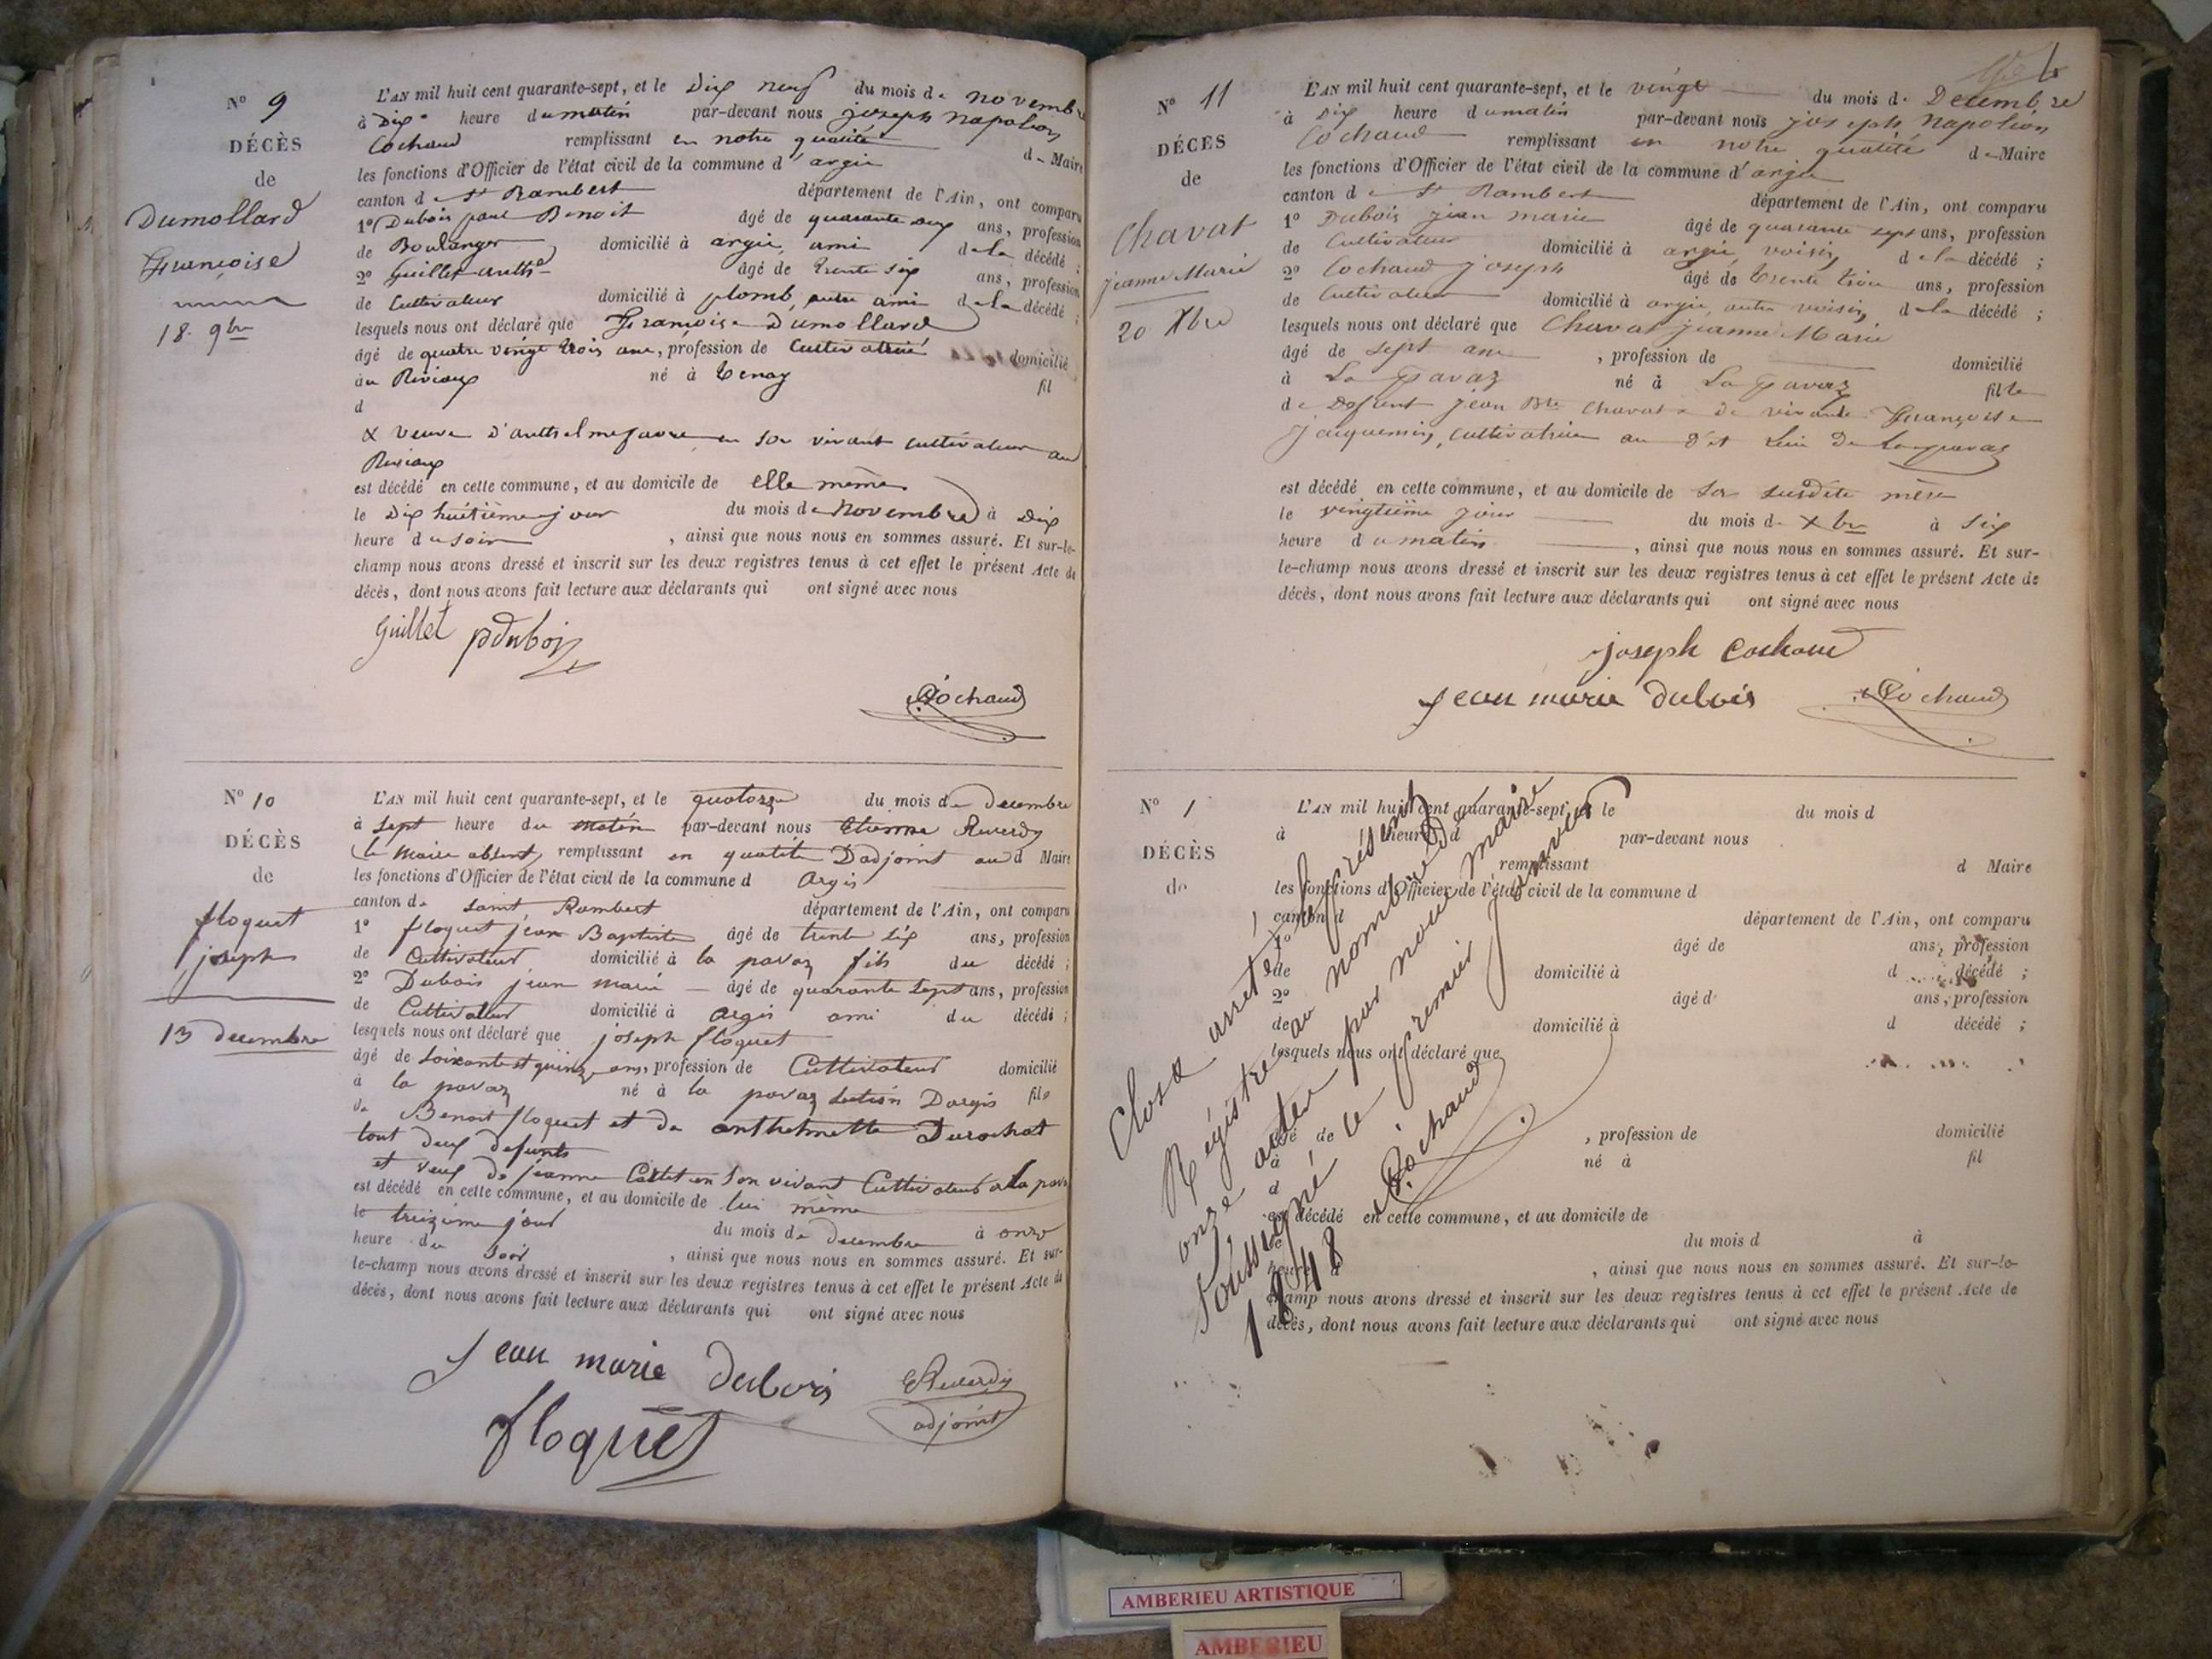 N° 9
DÉCÈS
de
Dumollard
Françoise
18. 9bre
L'AN mil huit cent quarante-sept, et le Dix neuf du mois de novembre
à Dix heure du matin par-devant nous joseph napoléon
Cochaud remplissant en notre qualité de Maire
les fonctions d'Officier de l'état civil de la commune d'argis
canton de St Rambert département de l'Ain, ont comparu
1° Dubois paul Benoit âgé de quarante ans, profession
de Boulanger domicilié à argis, ami de la décédé ;
2° Guillet anthe âgé de trente six ans, profession
de Cultivateur domicilié à plomb, autre ami de la décédé ;
lesquels nous ont déclaré que Françoise Dumollard
âgé de quatre vingt trois ans, profession de Cultivatrice domicilié
au Rivioux né à tenay fil
d
& veuve d'anthelme favre en son vivant cultivateur au
Rivioux
est décédé en cette commune, et au domicile de elle même
le Dix huitième jour du mois de Novembre à Dix
heure du soir , ainsi que nous nous en sommes assuré. Et sur-le-
champ nous avons dressé et inscrit sur les deux registres tenus à cet effet le présent Acte de
décès, dont nous avons fait lecture aux déclarants qui ont signé avec nous
Guillet pdubois
Cochaud
N° 10
DÉCÈS
de
floquet
joseph
13 decembre
L'AN mil huit cent quarante-sept, et le quatorze du mois de decembre
à sept heure du matin par-devant nous Etienne Reverdy
le maire absent, remplissant en qualité D'adjoint au d Maire
les fonctions d'Officier de l'état civil de la commune d Argis
canton de saint Rambert département de l'Ain, ont comparu
1° floquet jean Baptiste âgé de trente six ans, profession
de Cultivateur domicilié à la pavaz fils du décédé ;
2° Dubois jean marie âgé de quarante sept ans, profession
de Cultivateur domicilié à argis ami du décédé ;
lesquels nous ont déclaré que joseph floquet
âgé de soixante et quinze ans, profession de Cultivateur domicilié
à la pavaz né à la pavaz section Dargis fils
de Benoit floquet et de anthelmette Durochat
tout deux defunts
et veuf de jeanne Callet en son vivant Cultivateur a la pava
est décédé en cette commune, et au domicile de lui même
le treizième jour du mois de decembre à onze
heure du soir , ainsi que nous nous en sommes assuré. Et sur-
le-champ nous avons dressé et inscrit sur les deux registres tenus à cet effet le présent Acte de
décès, dont nous avons fait lecture aux déclarants qui ont signé avec nous
jean marie dubois
EReverdy
adjoint
floquet
N° 11
DÉCÈS
de
Chavat
jeanne Marie
20 Xbre
L'AN mil huit cent quarante-sept, et le vingt du mois de Decembre
à Dix heure du matin par-devant nous joseph napoléon
Cochaud remplissant en notre qualité de Maire
les fonctions d'Officier de l'état civil de la commune d'argis
canton de St Rambert département de l'Ain, ont comparu
1° Dubois jean marie âgé de quarante sept ans, profession
de Cultivateur domicilié à argis, voisin de la décédé ;
2° Cochaud joseph âgé de trente trois ans, profession
de Cultivateur domicilié à argis, autre voisin, de la décédé ;
lesquels nous ont déclaré que Chavat jeanne Marie
âgé de sept ans , profession de domicilié
à La pavaz né à La pavaz fille
de Defunt jean Bte Chavat & de vivante Françoise
Jacquemin, cultivatrice au dit lieu de la pavaz
est décédé en cette commune, et au domicile de sa susdite mère
le vingtième jour du mois de Xbre à Six
heure du matin , ainsi que nous nous en sommes assuré. Et sur-
le-champ nous avons dressé et inscrit sur les deux registres tenus à cet effet le présent Acte de
décès, dont nous avons fait lecture aux déclarants qui ont signé avec nous
joseph cochaud
jean marie dubois Cochaud
N° 1
DÉCÈS
de
L'AN mil huit cent quarante-sept, et le du mois d
à heure d par-devant nous
remplissant d Maire
les fonctions d'Officier de l'état civil de la commune d
canton d département de l'Ain, ont comparu
1° âgé de ans, profession
de domicilié à d décédé ;
2° âgé d ans, profession
de domicilié à d décédé ;
lesquels nous ont déclaré que
âgé de , profession de domicilié
à né à fil
d
est décédé en cette commune, et au domicile de
le du mois d à
heure d , ainsi que nous nous en sommes assuré. Et sur-le-
champ nous avons dressé et inscrit sur les deux registres tenus à cet effet le présent Acte de
décès, dont nous avons fait lecture aux déclarants qui ont signé avec nous
Clos & arrêté le présent
Régistre au nombre de
onze actes par nous maire
Soussigné ce premier janvier
1848 Cochaud
AMBERIEU ARTISTIQUE
AMBERIEU